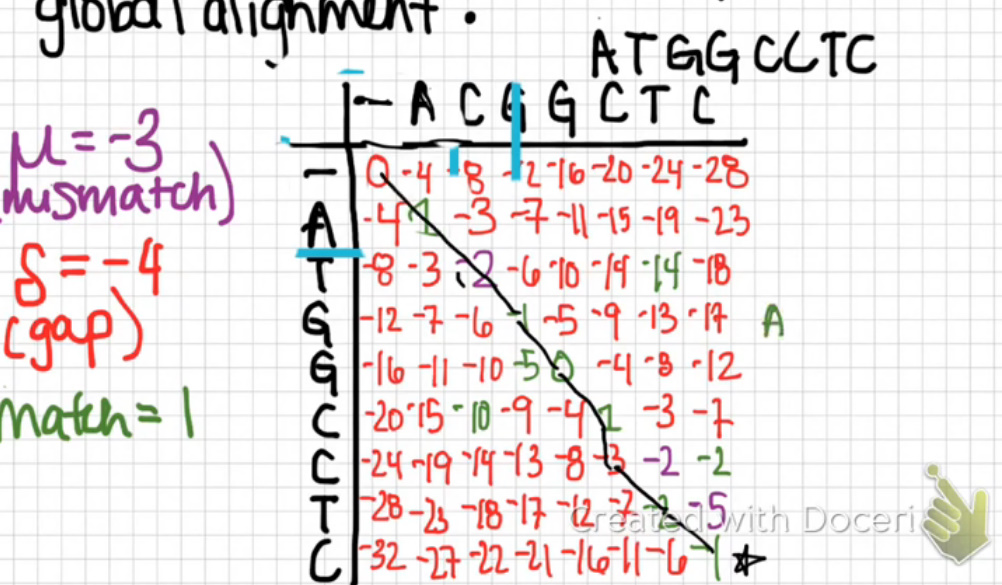 global alignment.
ATGGCCTC
- A C G G C T C
μ = -3
(mismatch)
δ = -4
(gap)
match = 1
- 0 -4 -8 -12 -16 -20 -24 -28
A -4 1 -3 -7 -11 -15 -19 -23
T -8 -3 -2 -6 -10 -14 -14 -18
G -12 -7 -6 -1 -5 -9 -13 -17 A
G -16 -11 -10 -5 0 -4 -8 -12
C -20 -15 -10 -9 -4 1 -3 -7
C -24 -19 -14 -13 -8 -3 -2 -2
T -28 -23 -18 -17 -12 -7 -2 -5
C -32 -27 -22 -21 -16 -11 -6 -1
Created with Doceri